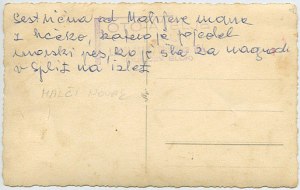 Sestrična od Malijeve mame
z hčeko, katero je pojedel
morski pes, ko je šla za nagrado
v Split na izlet